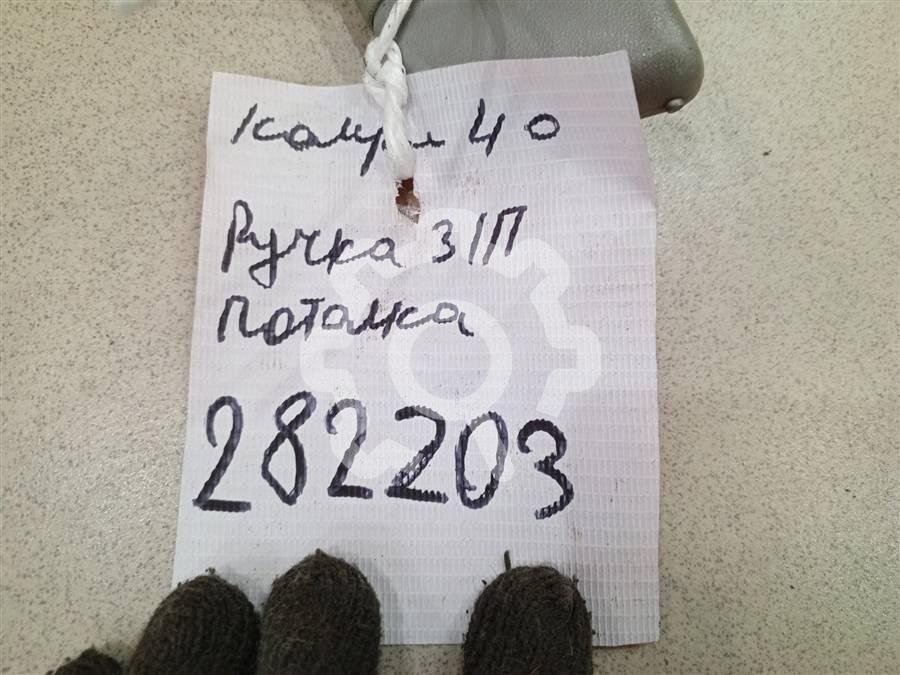 Камри 40
Ручка З/П
Потолка
282203